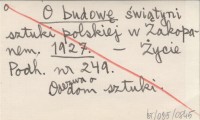 O budowę świątyni
sztuki polskiej w Zakopa-
nem. 1927. – Życie
Podh. nr 249.
Odezwa o
dom sztuki.